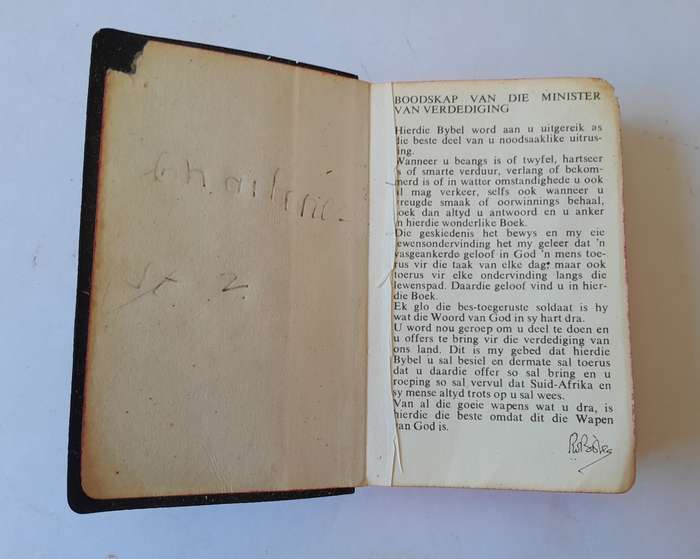 st 2
BOODSKAP VAN DIE MINISTER
VAN VERDEDIGING
Hierdie Bybel word aan u uitgereik as
die beste deel van u noodsaaklike uitrus-
ting.
Wanneer u beangs is of twyfel, hartseer
is of smarte verduur, verlang of bekom-
merd is of in watter omstandighede u ook
al mag verkeer, selfs ook wanneer u
vreugde smaak of oorwinnings behaal,
soek dan altyd u antwoord en u anker
in hierdie wonderlike Boek.
Die geskiedenis het bewys en my eie
lewensondervinding het my geleer dat 'n
vasgeankerde geloof in God 'n mens toe-
rus vir die taak van elke dag, maar ook
toerus vir elke ondervinding langs die
lewenspad. Daardie geloof vind u in hier-
die Boek.
Ek glo die bes-toegeruste soldaat is hy
wat die Woord van God in sy hart dra.
U word nou geroep om u deel te doen en
u offers te bring vir die verdediging van
ons land. Dit is my gebed dat hierdie
Bybel u sal besiel en dermate sal toerus
dat u daardie offer so sal bring en u
roeping so sal vervul dat Suid-Afrika en
sy mense altyd trots op u sal wees.
Van al die goeie wapens wat u dra, is
hierdie die beste omdat dit die Wapen
van God is.